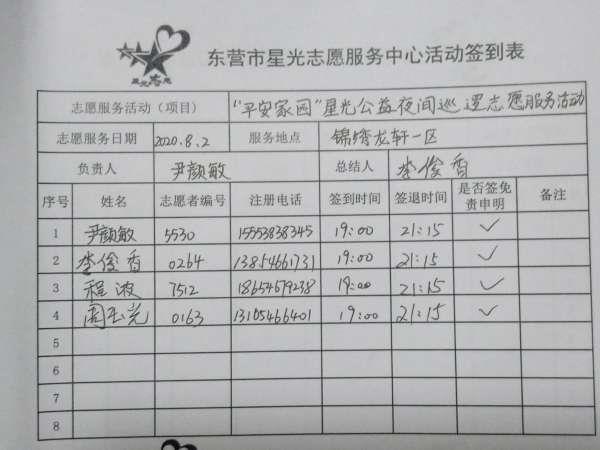 星光志愿
东营市星光志愿服务中心活动签到表
志愿服务活动（项目） "平安家园"星光公益夜间巡逻志愿服务活动
志愿服务日期 2020.8.2 服务地点 锦绣龙轩一区
负责人 尹颜敏 总结人 李俊香
序号 姓名 志愿者编号 注册电话 签到时间 签退时间 是否签免责申明 备注
1 尹颜敏 5530 15553838345 19:00 21:15 ✓
2 李俊香 0264 13854661731 19:00 21:15 ✓
3 程波 7512 18654679238 19:00 21:15 ✓
4 周玉光 0163 13105466401 19:00 21:15 ✓
5
6
7
8